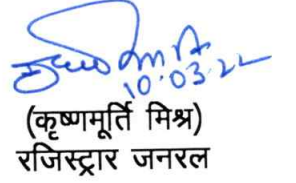 10.03.22
(कृष्णमूर्ति मिश्र)
रजिस्ट्रार जनरल